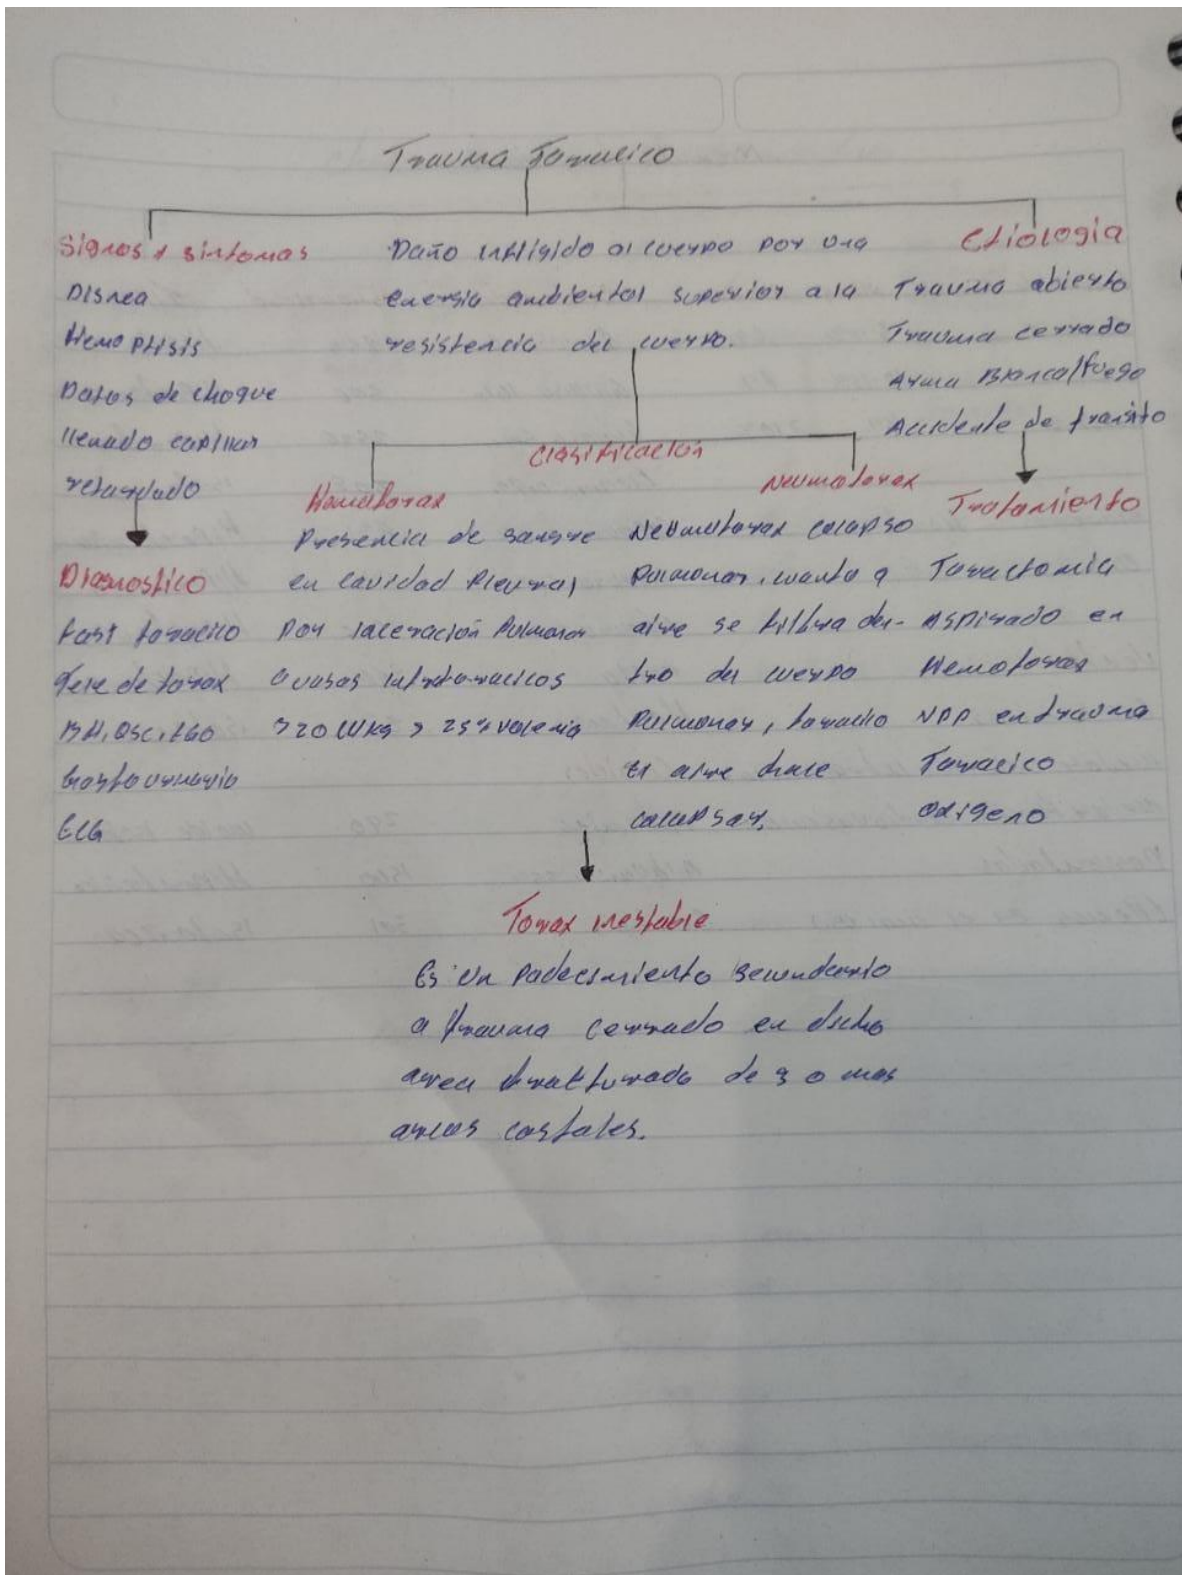 Trauma Toracico
Signos y sintomas
Disnea
Hemoptisis
Datos de choque
llenado capilar
retardado
Diagnostico
Fast toracico
Tele de torax
BH, QSC, EGO
Gasto urinario
ECG
Daño infligido al cuerpo por una
energia ambiental superior a la
resistencia del cuerpo.
Clasificación
Hemotorax
Presencia de sangre
en cavidad Pleural
por laceración Pulmonar
o vasos intratoracicos
>20 > 25% volemia
Neumotorax
Neumotorax colapso
Pulmonar, cuanto a
aire se filtra den-
tro del cuerpo
Pulmonar, toracico
el aire hace
colapsar.
Etiologia
Trauma abierto
Trauma cerrado
Arma Blanca/fuego
Accidente de transito
Tratamiento
Toractomia
Aspirado en
Hemotorax
NPP en trauma
Toracico
Oxigeno
Torax inestable
Es un Padecimiento Secundario
a trauma cerrado en dicho
area de 3 o mas
arcos costales.